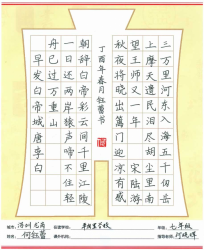 三万里河东入海五千仞岳
上摩天遗民泪尽胡尘里南
望王师又一年 宋陆游
秋夜将晓出篱门迎凉有感
丁酉年春月钰蕾书
朝辞白帝彩云间千里江陵
一日还两岸猿声啼不住轻
舟已过万重山
早发白帝城唐李白
深圳龙岗
学校
七年级
何钰蕾